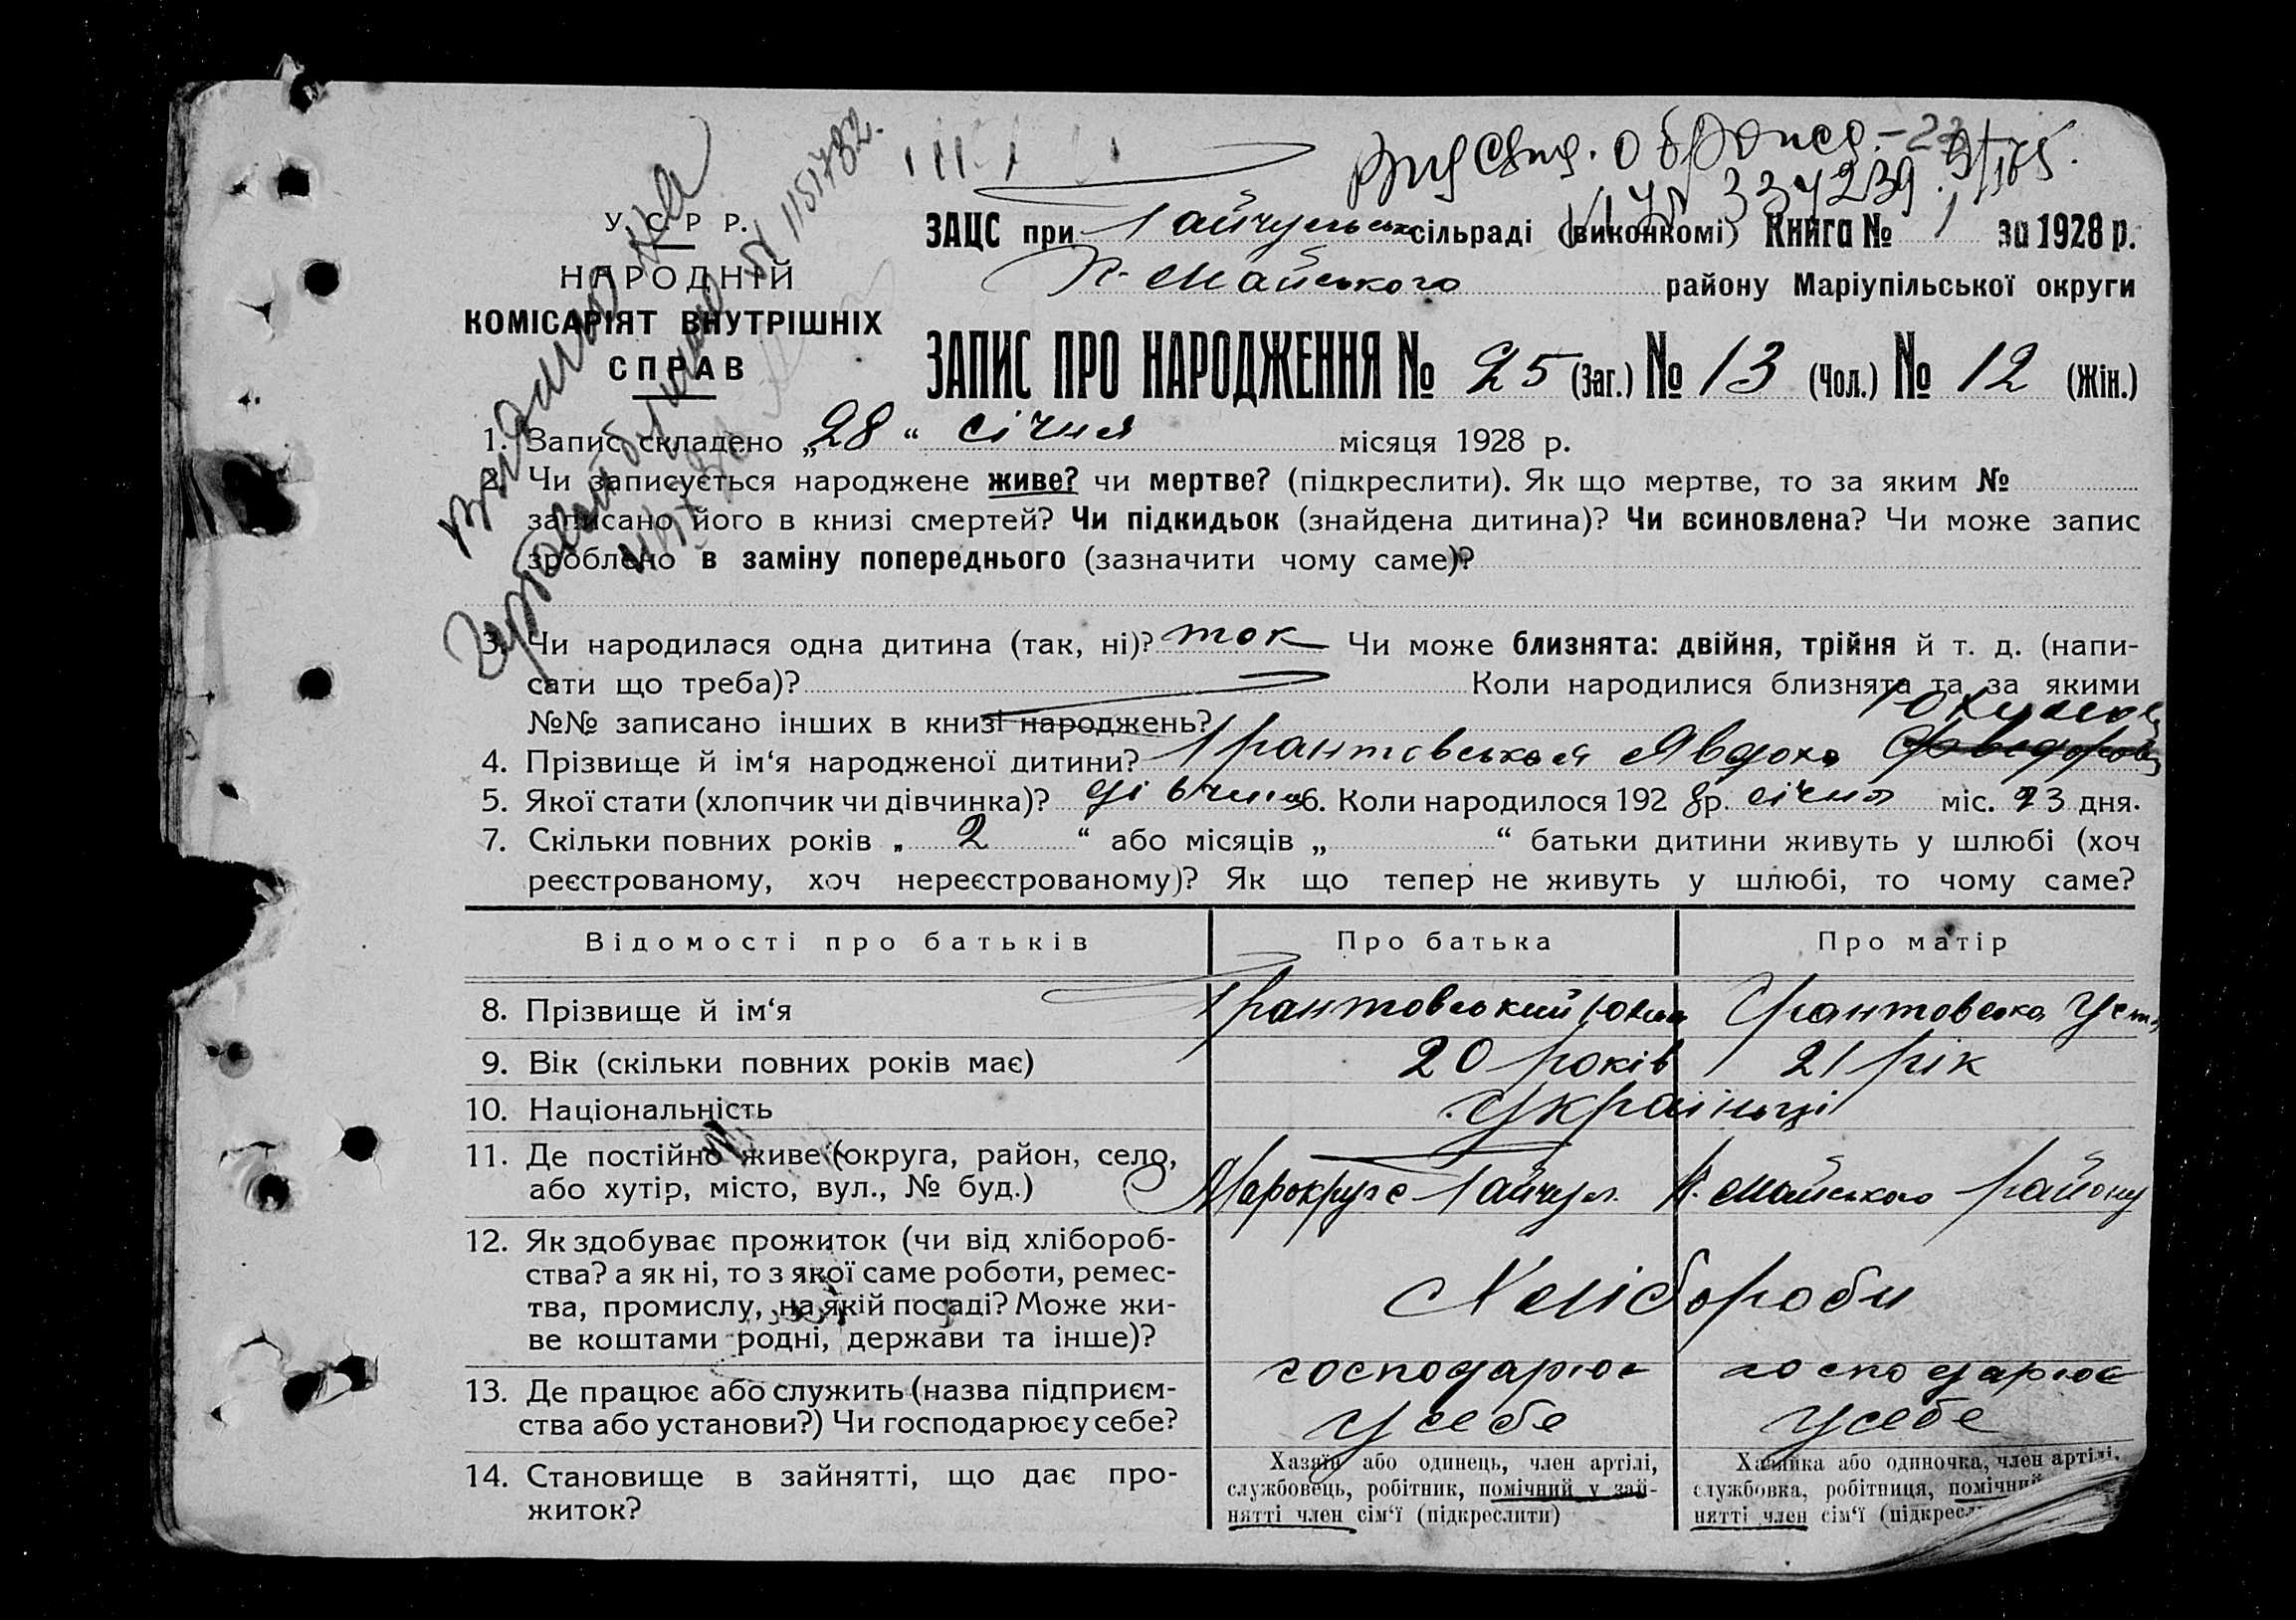 У. С. Р. Р.
НАРОДНІЙ
КОМІСАРІЯТ ВНУТРІШНІХ
СПРАВ
ЗАЦС при Гайчульськ сільраді (виконкомі) Книга № 1 за 1928 р.
К-Майського району Маріупільської округи
ЗАПИС ПРО НАРОДЖЕННЯ № 25 (Заг.) № 13 (Чол.) № 12 (Жін.)
1. Запис складено „28“ січня місяця 1928 р.
2. Чи записується народжене живе? чи мертве? (підкреслити). Як що мертве, то за яким №
записано його в книзі смертей? Чи підкидьок (знайдена дитина)? Чи всиновлена? Чи може запис
зроблено в заміну попереднього (зазначити чому саме)?
3. Чи народилася одна дитина (так, ні)? так Чи може близнята: двійня, трійня й т. д. (напи-
сати що треба)? Коли народилися близнята та за якими
№№ записано інших в книзі народжень?
4. Прізвище й ім‘я народженої дитини? Грантовська Явдоха
5. Якої стати (хлопчик чи дівчинка)? дівчина 6. Коли народилося 192 8 р. січня міс. 23 дня.
7. Скільки повних років „ 2 “ або місяців „ “ батьки дитини живуть у шлюбі (хоч
реєстрованому, хоч нереєстрованому)? Як що тепер не живуть у шлюбі, то чому саме?
Відомості про батьків Про батька Про матір
8. Прізвище й ім‘я Грантовський Юхим Грантовська Уст
9. Вік (скільки повних років має) 20 років 21 рік
10. Національність Українці
11. Де постійно живе (округа, район, село,
або хутір, місто, вул., № буд.) Марокруге Гайчул. К. Майського району
12. Як здобуває прожиток (чи від хлібороб-
ства? а як ні, то з якої саме роботи, ремес-
тва, промислу, на якій посаді? Може жи-
ве коштами родні, держави та інше)?
Хлібороби
13. Де працює або служить (назва підприєм-
ства або установи?) Чи господарює у себе?
господарює у себе
господарює у себе
14. Становище в зайнятті, що дає про-
житок?
Хазяїн або одинець, член артілі,
службовець, робітник, помічний у зай-
нятті член сім‘ї (підкреслити)
Хазяйка або одиночка, член артілі,
службовка, робітниця, помічний
нятті член сім‘ї